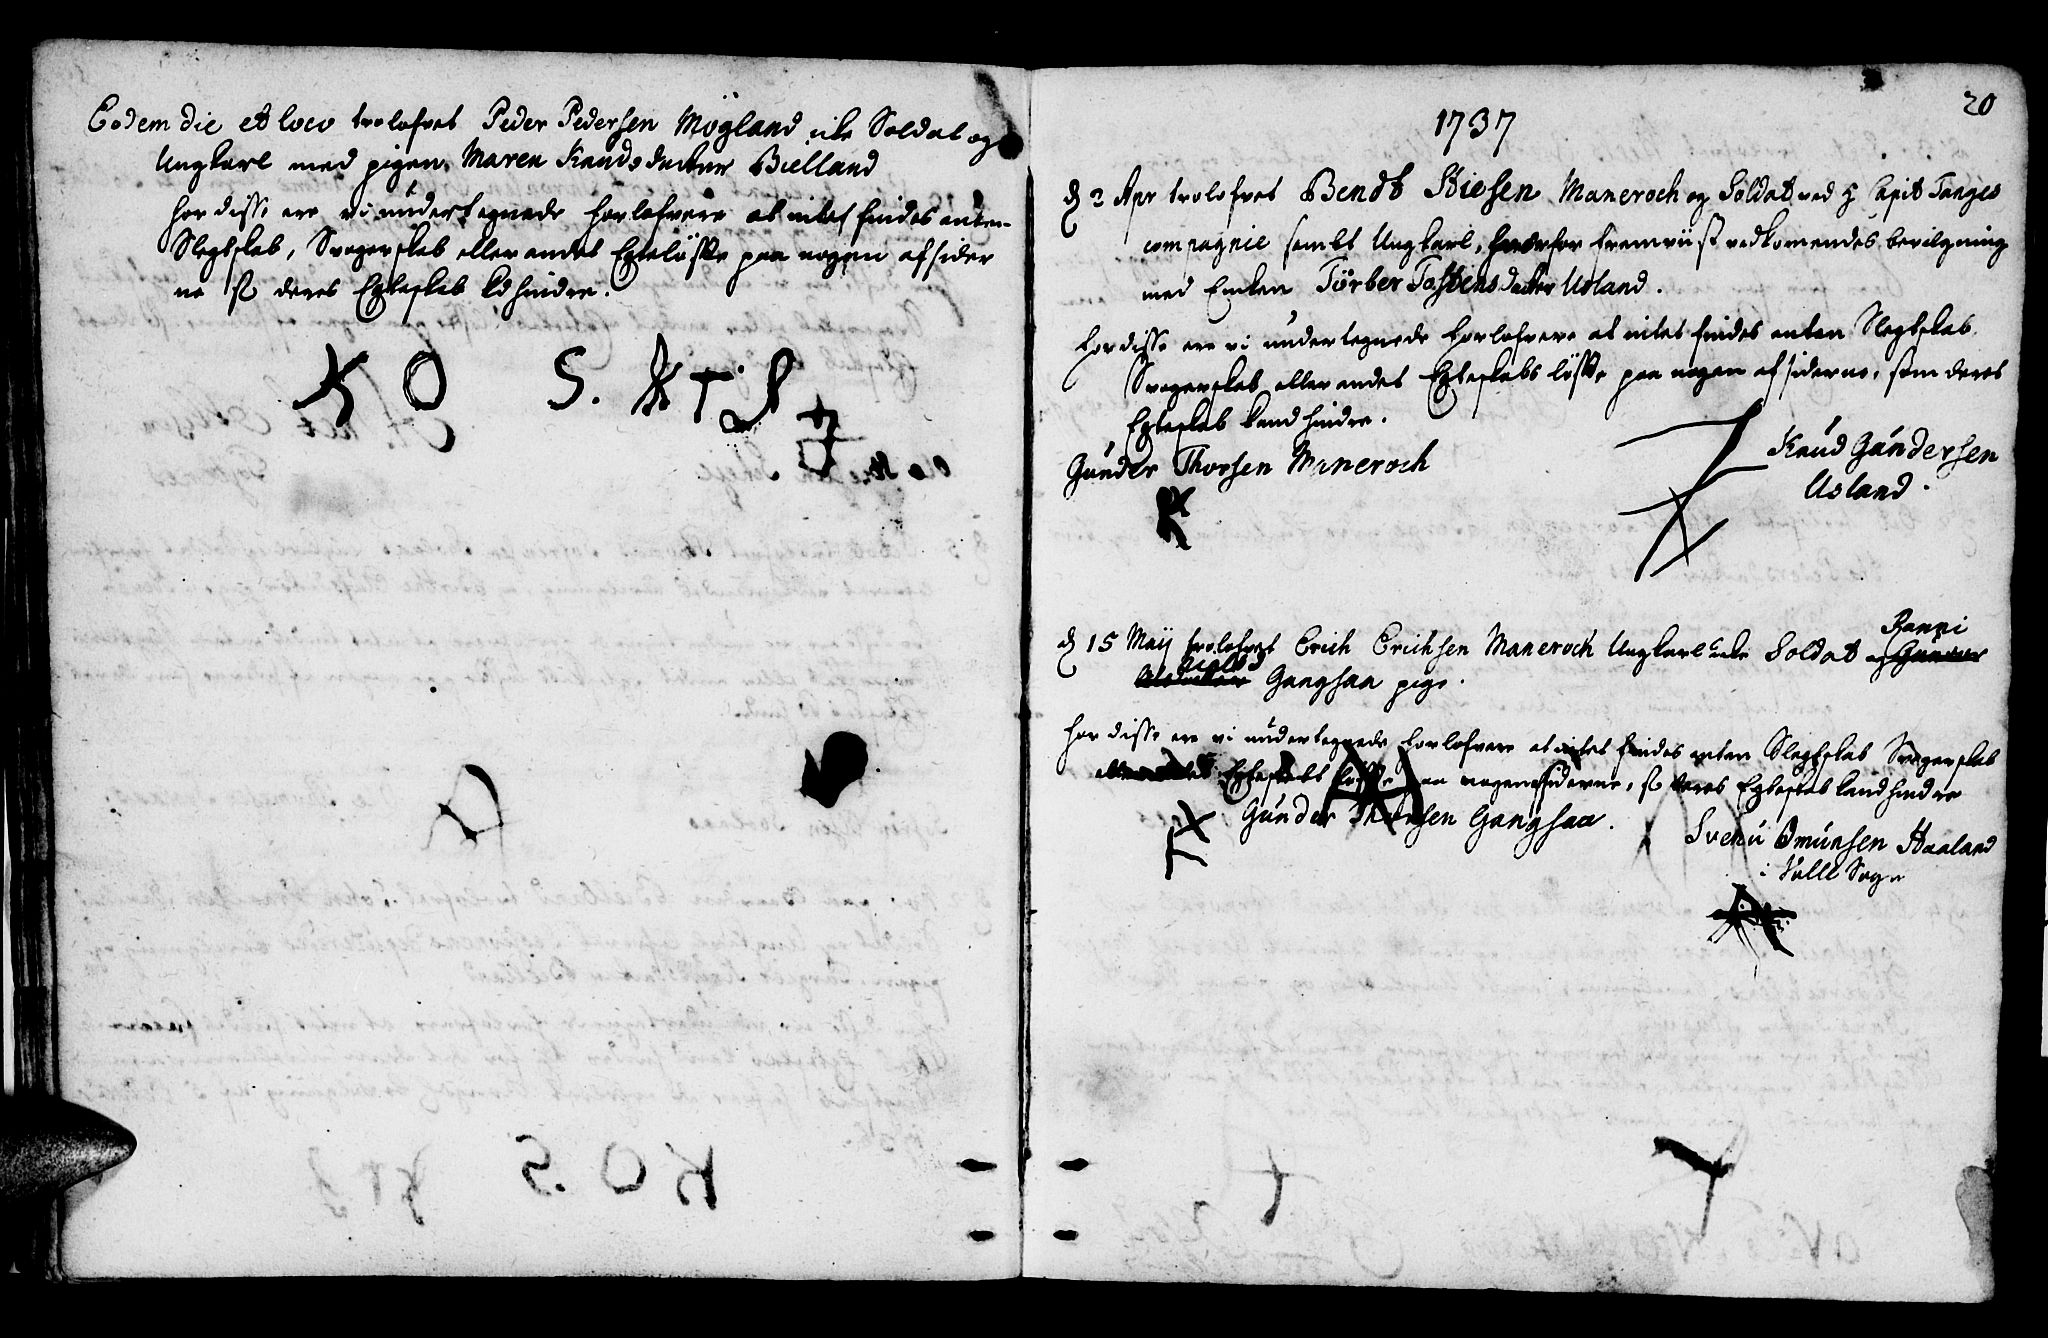 Eodem die et loco trolofvet Peder Pedersen Mögland icke Soldat og
Ungkarl med pigen Maren Knudsdatter Bielland
for disse ere vi undertegnede forlofvere at intet findes enten
Slegtskab, Svogerskab eller andet Egteløfte paa nogen af sider
ne som deres Egteskab kand hindre.
K O S. K T S
20
1737
d 2 Apr trolofvet Bendt Stiesen Maneroch og Soldat ved H Capit Tanges
compagnie samt Ungkarl, fremviist vedkomendes bevilgning
med Enken Törber Tostensdatter Usland.
for disse ere vi undertegnede forlofvere at intet findes enten Slegtskab
Svogerskab eller andet Egteskabs løfte paa nogen af siderne, som deres
Egteskab kand hindre.
Gunder Thorsen Maneroch
Knud Gundersen
Usland.
d 15 Maij trolofvet Erich Erichsen Maneroch Ungkarl icke Soldat og
Gangsaa pige.
for disse ere vi undertegnede forlofvere at intet findes enten Slegtskab Svogerskab
Egteskabs løfte paa nogen siderne, som deres Egteskab kand hindre
Gunder Thorsen Gangsaa.
Svenu Omunsen Haaland
i Valle Sogn